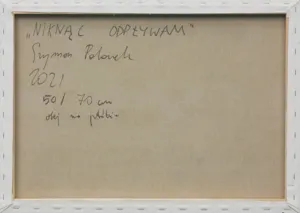 „NIKNĄC ODPŁYWAM"
Szymon Polonek
2021
50/70 cm
olej na płótnie